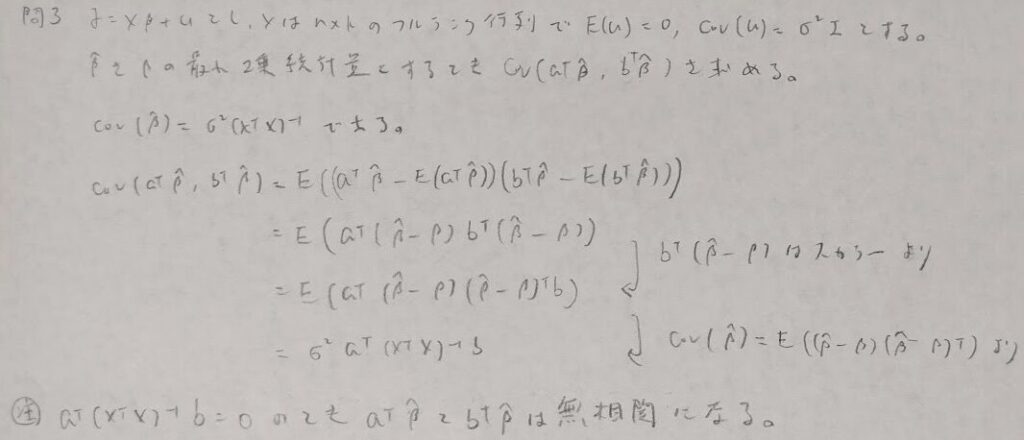 問3 y=Xβ+uとし、Xはn×kのフルランク行列でE(u)=0, Cov(u)=σ²Iとする。
β̂をβの最小2乗推計量とするときCov(aᵀβ̂, bᵀβ̂)を求める。
Cov(β̂)=σ²(XᵀX)⁻¹である。
Cov(aᵀβ̂, bᵀβ̂)=E((aᵀβ̂-E(aᵀβ̂))(bᵀβ̂-E(bᵀβ̂)))
=E(aᵀ(β̂-β)bᵀ(β̂-β))
bᵀ(β̂-β)はスカラーより
=E(aᵀ(β̂-β)(β̂-β)ᵀb)
Cov(β̂)=E((β̂-β)(β̂-β)ᵀ)より
=σ²aᵀ(XᵀX)⁻¹b
注 aᵀ(XᵀX)⁻¹b=0のときaᵀβ̂とbᵀβ̂は無相関になる。